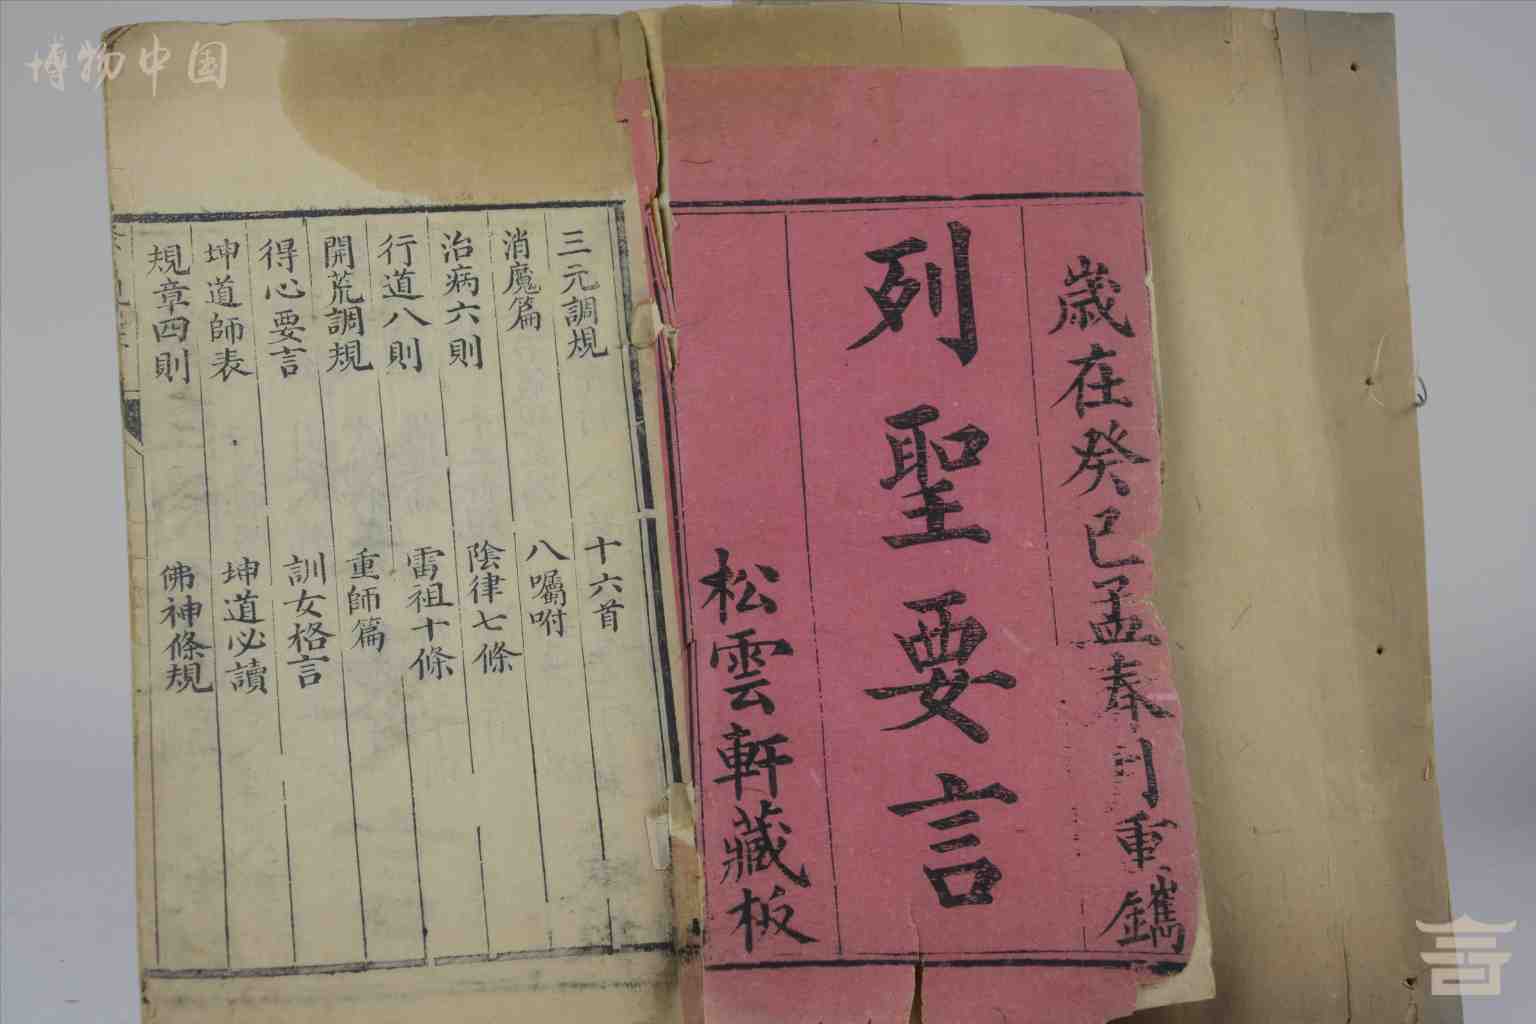 博物中国
歲在癸巳孟春月重鐫
列聖要言
松雲軒藏板
三元調規 十六首
消魔篇 八囑咐
治病六則 陰律七條
行道八則 雷祖十條
開荒調規 重師篇
得心要言 訓女格言
坤道師表 坤道必讀
規章四則 佛神條規